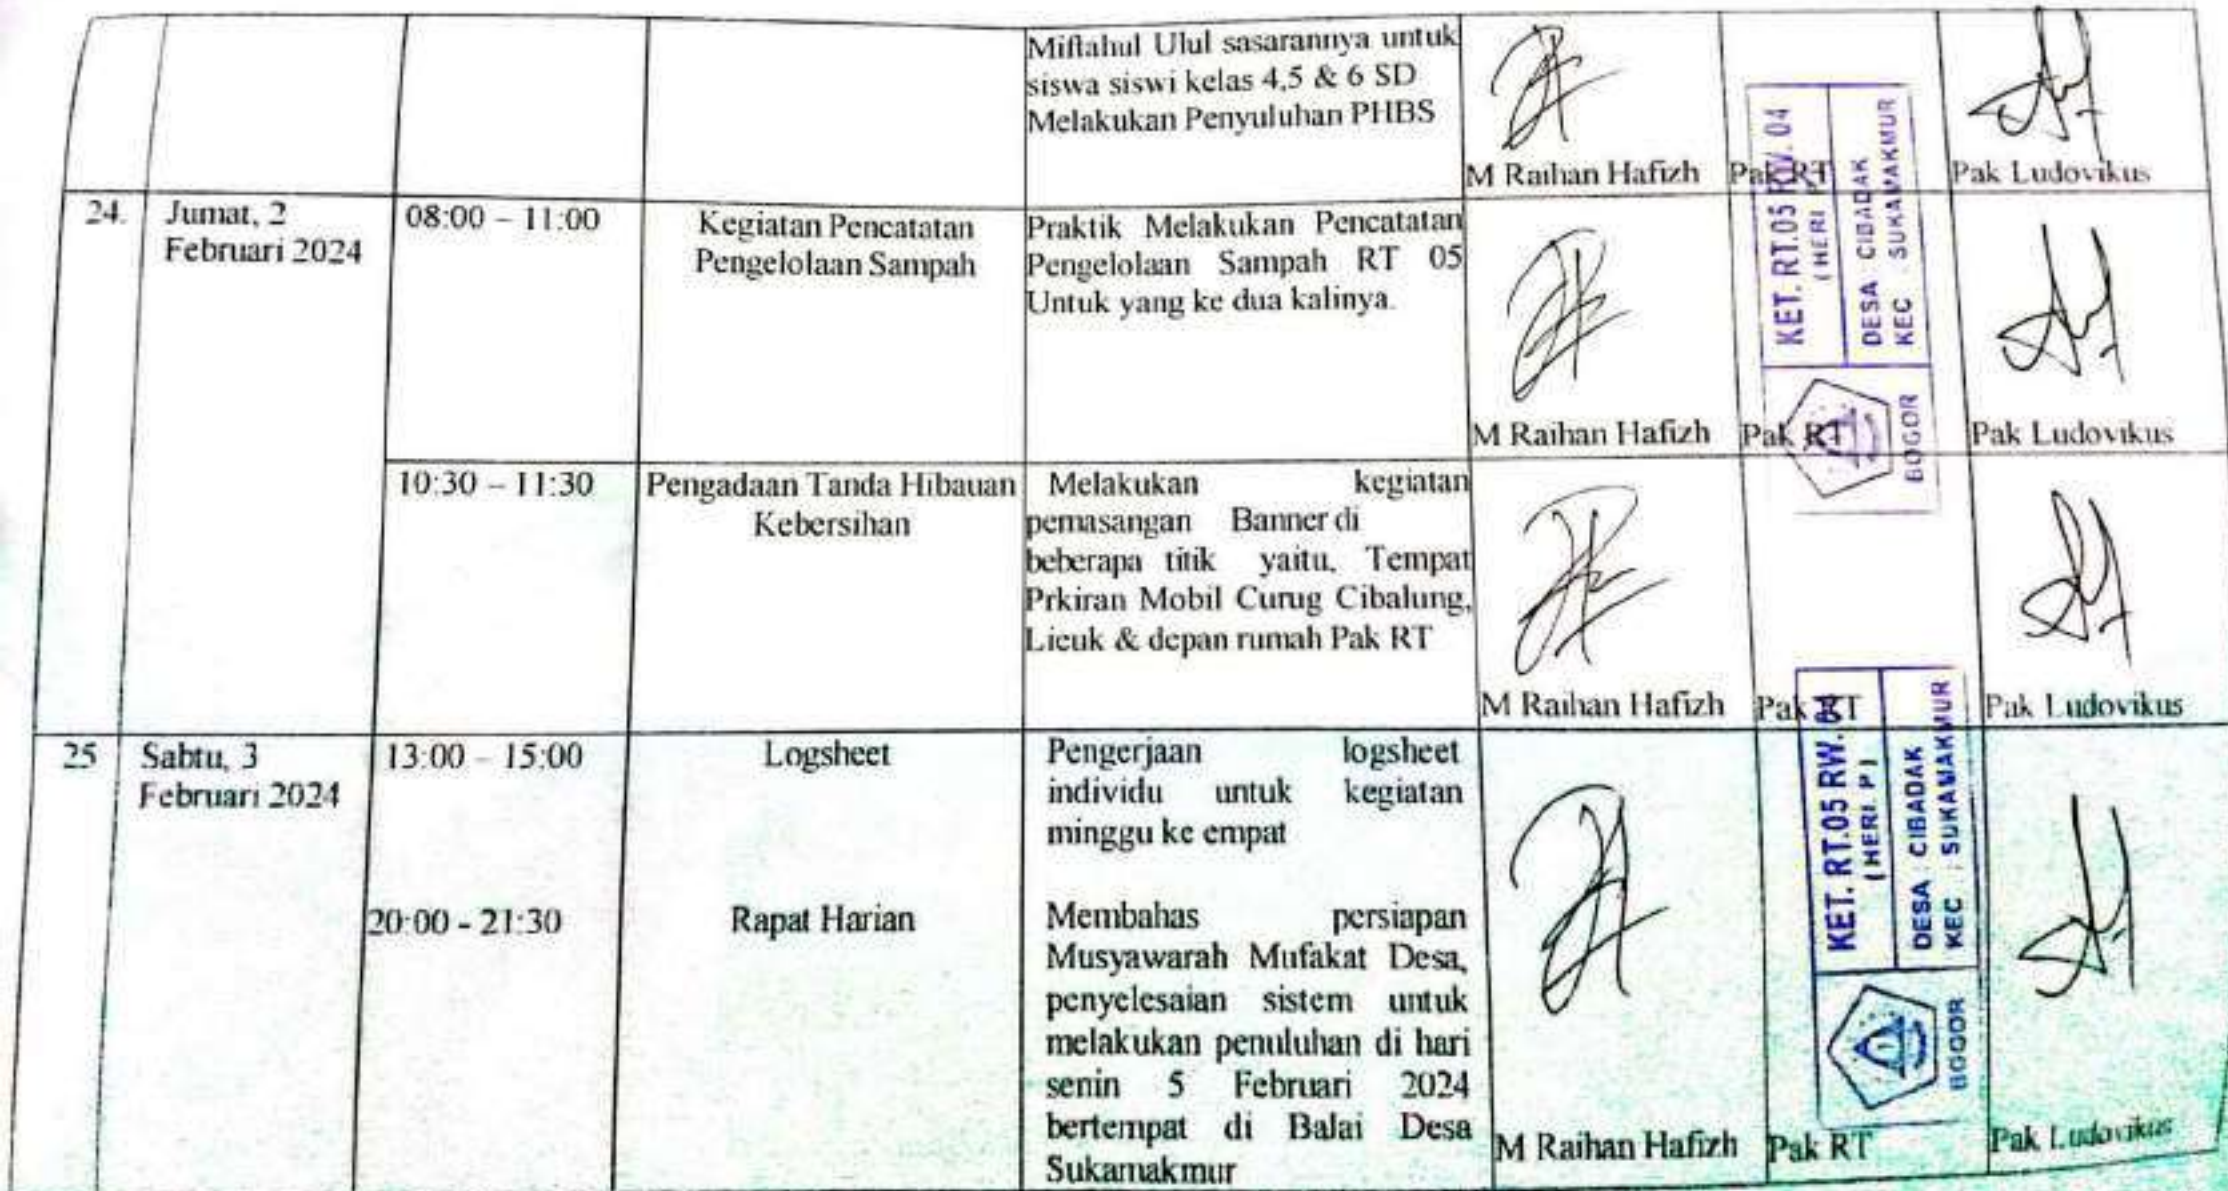 Miftahul Ulul sasarannya untuk
siswa siswi kelas 4,5 & 6 SD
Melakukan Penyuluhan PHBS
M Raihan Hafizh
Pak RT
Pak Ludovikus
KET. RT.05 RW. 04
(HERI P)
DESA : CIBADAK
KEC : SUKAMAKMUR
BOGOR
24.
Jumat, 2
Februari 2024
08:00 – 11:00
Kegiatan Pencatatan
Pengelolaan Sampah
Praktik Melakukan Pencatatan
Pengelolaan Sampah RT 05
Untuk yang ke dua kalinya.
M Raihan Hafizh
Pak RT
Pak Ludovikus
10:30 – 11:30
Pengadaan Tanda Hibauan
Kebersihan
Melakukan kegiatan
pemasangan Banner di
beberapa titik yaitu, Tempat
Prkiran Mobil Curug Cibalung,
Lieuk & depan rumah Pak RT
M Raihan Hafizh
Pak RT
Pak Ludovikus
KET. RT.05 RW. 04
(HERI. P)
DESA : CIBADAK
KEC : SUKAMAKMUR
BOGOR
25
Sabtu, 3
Februari 2024
13:00 – 15:00
Logsheet
Pengerjaan logsheet
individu untuk kegiatan
minggu ke empat
20:00 - 21:30
Rapat Harian
Membahas persiapan
Musyawarah Mufakat Desa,
penyelesaian sistem untuk
melakukan penuluhan di hari
senin 5 Februari 2024
bertempat di Balai Desa
Sukamakmur
M Raihan Hafizh
Pak RT
Pak Ludovikus